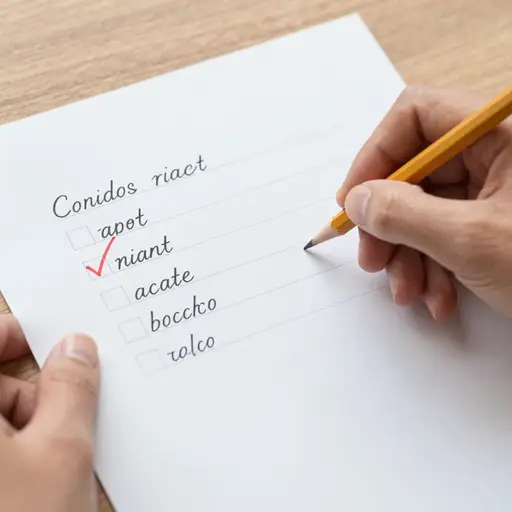 Conidos riact
apot
niant
acate
boccko
rolco